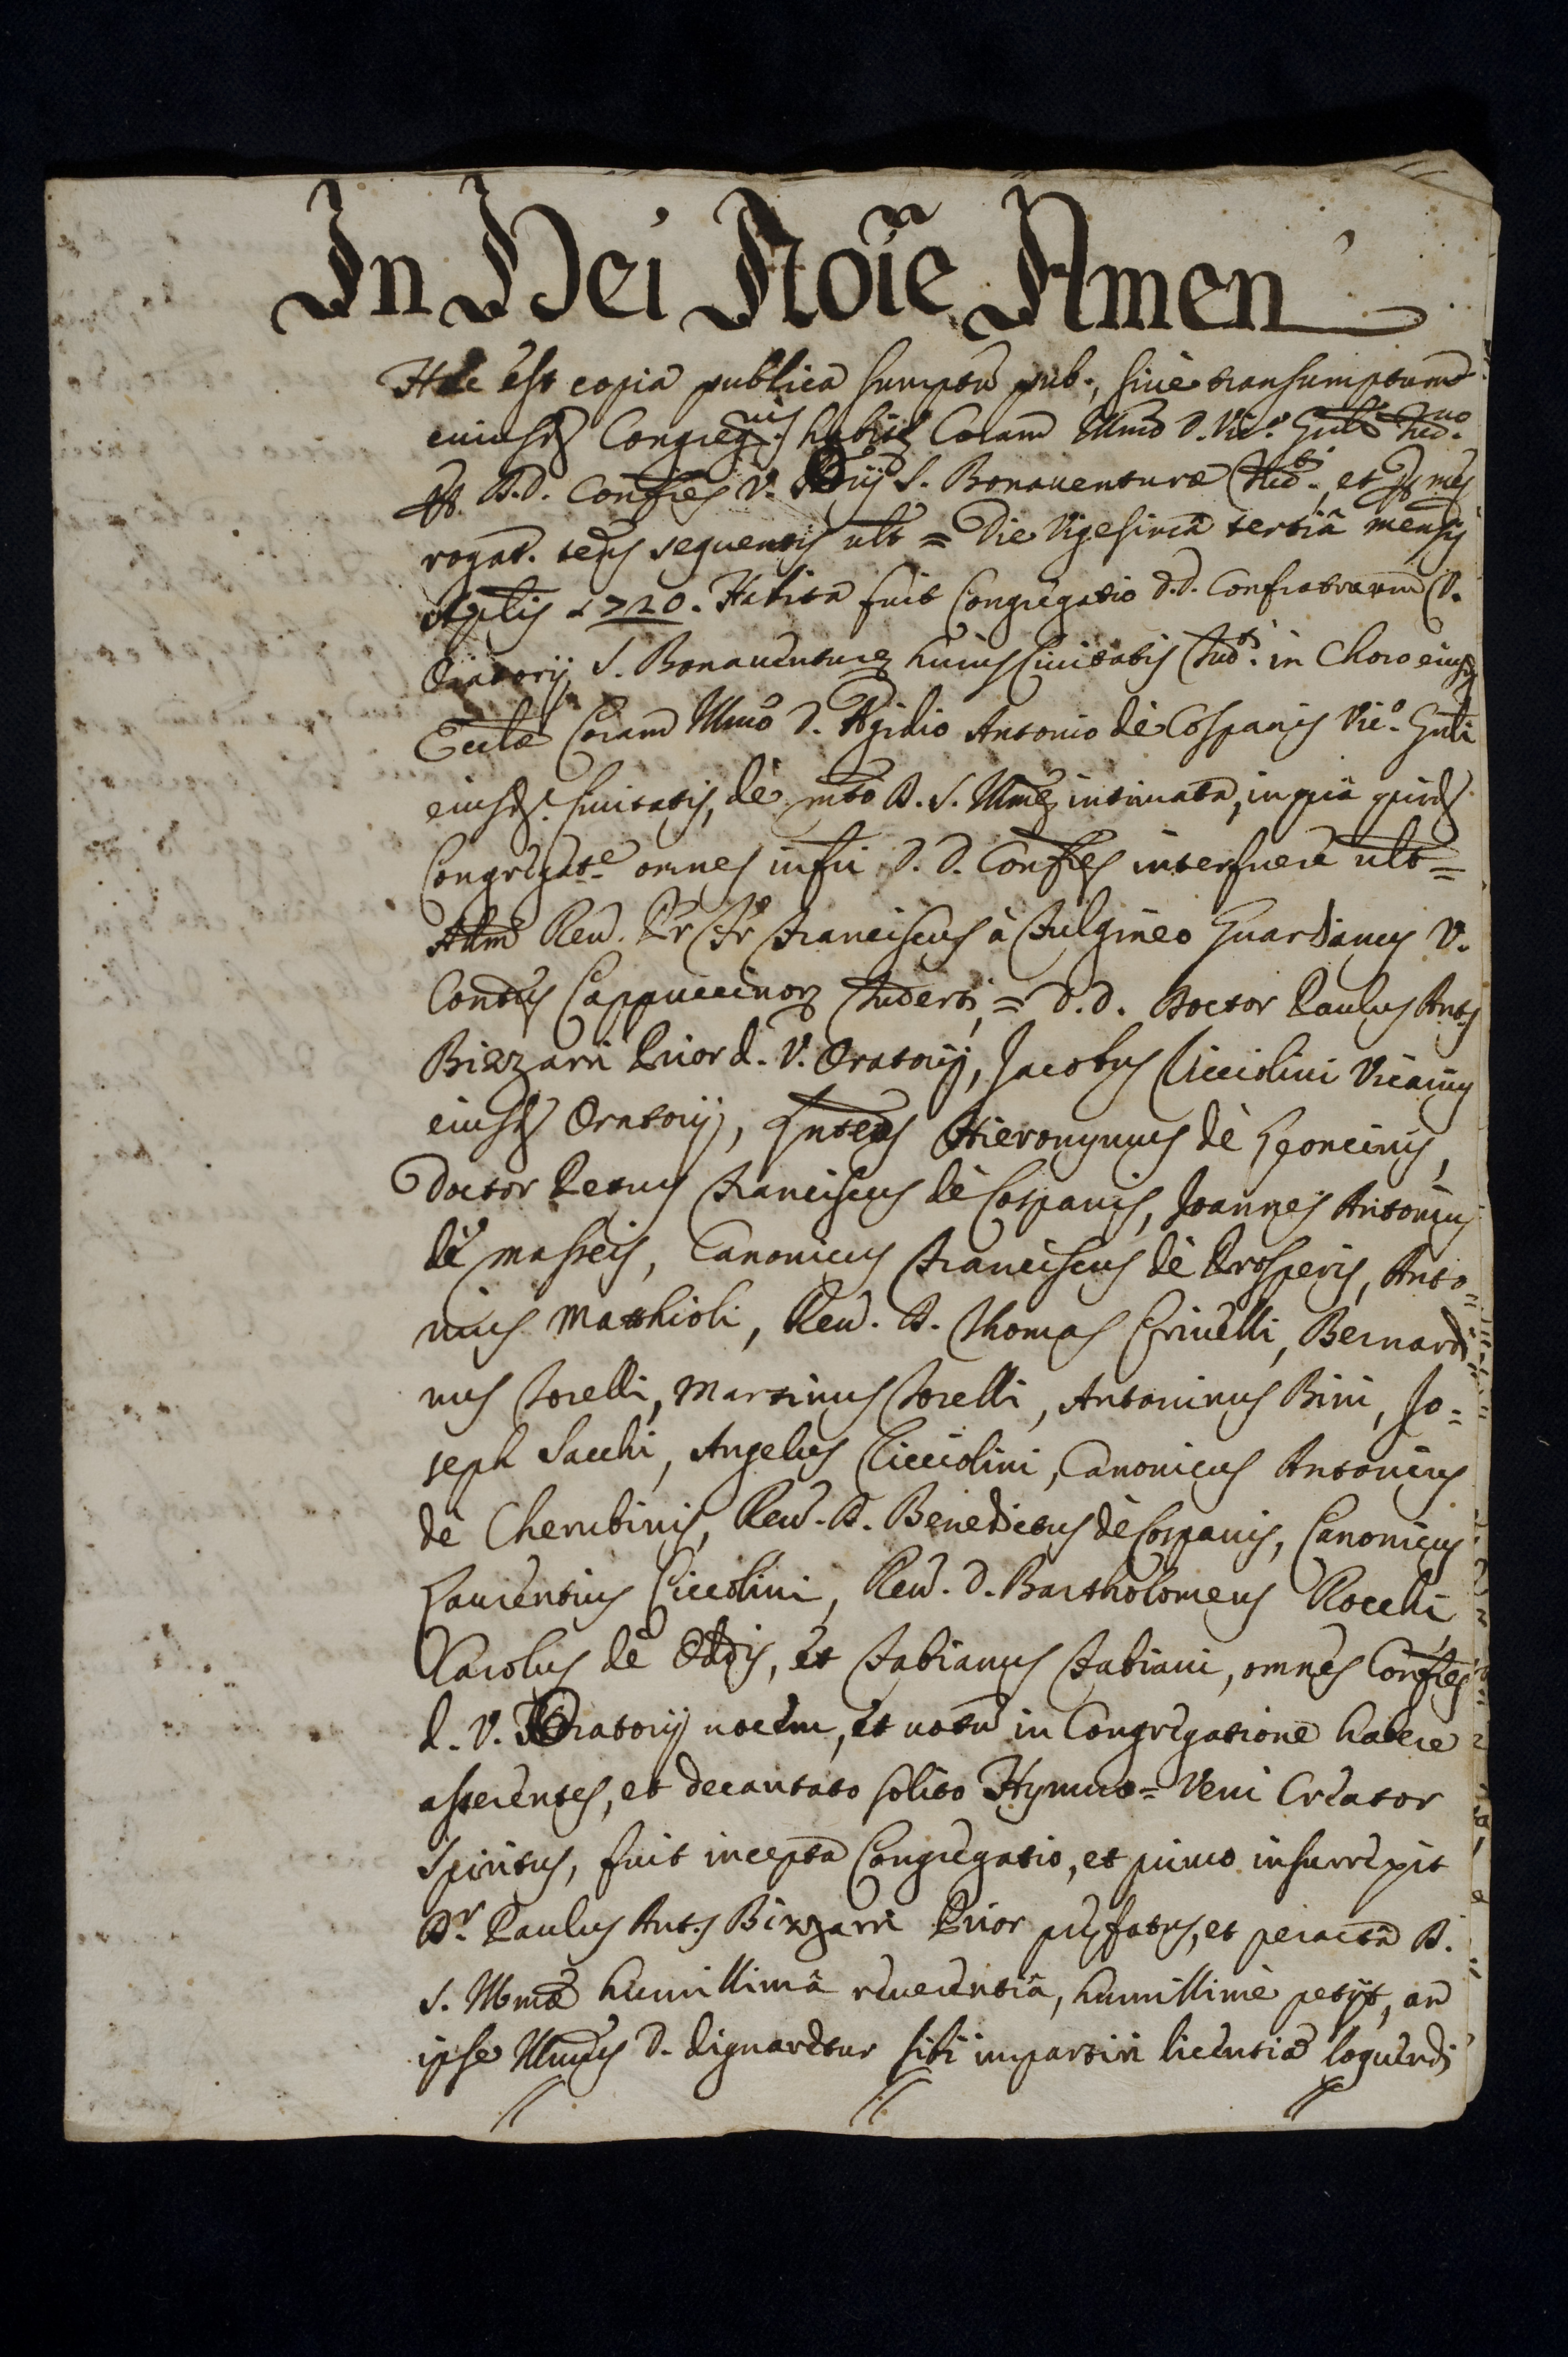 In Dei Noïe Amen
Hæc est copia publica sumptū pub., siuè transumptum
cuiusd. Congreg.nis habitę Coram Illmo D. Vic.o Gnli Tud.no
D.D. Confres V. Orij S. Bonauenturæ Tud.ti, et p mę
rogat. tenoris sequentis ult = Die Vigesimâ tertiâ mensis
Aplis 1720. Habita fuit Congregatio D.D. Confratrum V.
Oratorij S. Bonauenturę huius Ciuitatis Tud.ti in Choro eiusd
Ecclæ Coram Illmo D. Ægidio Antonio dè Cospanis Vic.o Gnli
eiusd. Ciuitatis, dè mto D. S. Illmę intimata, in quâ quid.
Congregat.e omnes infri D. D. Confres interfuere ult =
Adm Reu. Pr Fr Franciscus à Fulgineo Guardianus V.
Contus Cappuccinor Tuderti, = D.D. Doctor Paulus Ants
Bizzarri Prior d. V. Oratorij, Jacobus Ciccolini Vicarius
eiusd Oratorij, Hieronymus dè Leoncinis,
Doctor Petrus Franciscus dè Cospanis, Joannes Antonius
dè Masseis, Canonicus Franciscus dè Prosperis, Anto=
nius Matthioli, Reu. D. Thomas Criuelli, Bernardi
nus Torelli, Martinus Torelli, Antoninus Bini, Jo=
seph Sacchi, Angelus Ciccolini, Canonicus Antonius
dè Cherubinis, Reu. D. Benedictus dè Cospanis, Canonicus
Laurentius Ciccolini, Reu. D. Bartholomeus Rocchi
Carolus dè Oddis, et Fabianus Fabiani, omnes Confres
d. V. Oratorij uocem, et uotū in Congregatione habere
asserentes, et decantato solito Hymno = Veni Creator
Spiritus, fuit incepta Congregatio, et primo insurrexit
D.r Paulus Ants Bizzarri Prior pręfatus, et peractâ D.
S. Illmæ humillimâ reuerentiâ, humillimè petijt, an
ipse Illmus D. dignaretur sibi impartiri licentiā loquendi